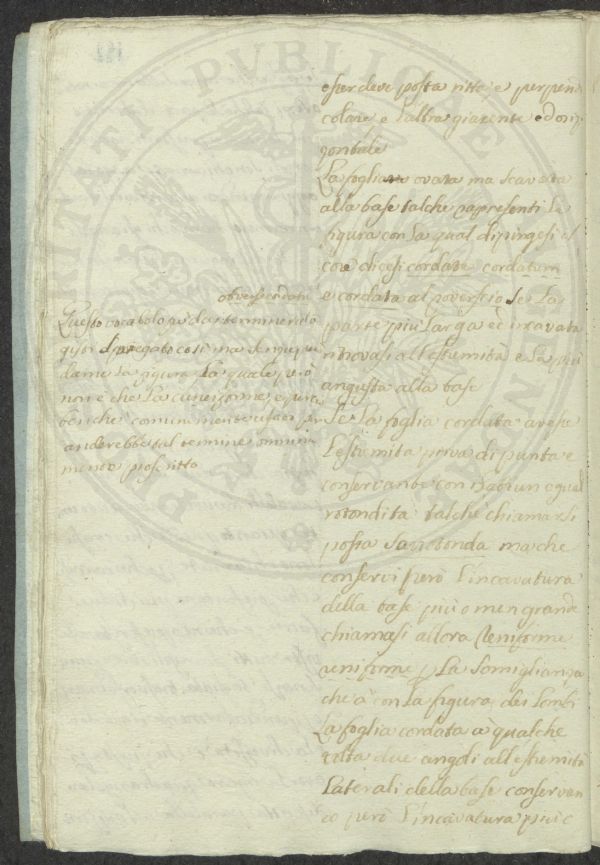 esser deve posta ritta, e perpend
colare, e l'altra giacente ed oriz
zontale
La foglia ovata ma scavata
alla base talche rapresenti la
figura con la qual dipingesi il
core dicesi cordata cordatum
e cordata al roverscio se la
parte più larga ed incavata
ritrovasi all'estremità e la più
angusta alla base
Se la foglia cordata avesse
l'estremità priva di punta e
conservante con una
rotondità talche chiamarsi
possa sarotonda ma che
conservi però l'incavatura
della base più o men grande
chiamasi allora reniforme
reniforme p. La somiglianza
che à con la figura dei lombi
La foglia cordata à qualche
volta due angoli all'estremità
Laterali della base conservan
do però l'incavatura
obverse cordatu
Questo vocabolo
così ma
dame la figura la quale però
non è che la
ben che comunemente
anderebbe tal termine omnina
mente proscritto